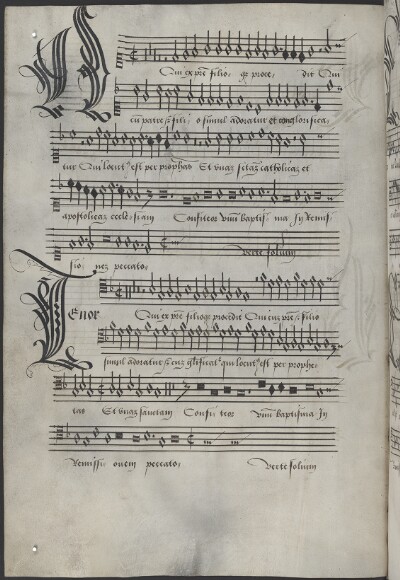 Qui ex pre filio qz proce dit Qui
cu patre z fili o simul adoratur et conglorifica
tur Qui locut9 est per prophetas Et unaz sctaz catholicaz et
apostolicaz eccle siam Confiteor unu baptis ma In Remis
sio nez peccato
verte folium
Tenor
Qui ex pre filioqz procedit Qui cuz pre z filio
simul adoratur z cuz glificat2 qui locut9 est per prophe
tas Et unaz sanctam Confi teor unu baptisma In
Remissi onem peccato
Verte folium